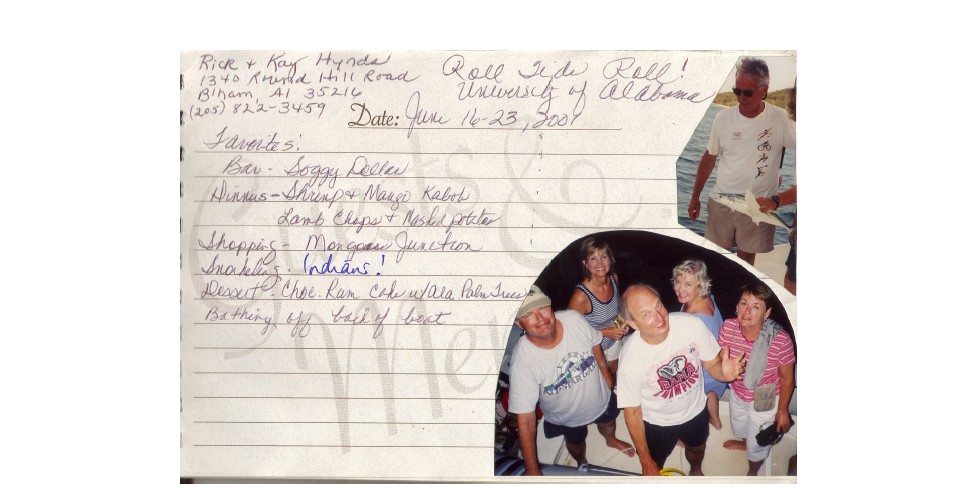 Rick & Kay Hynds
1340 Round Hill Road
B'ham, Al 35216
(205) 822-3459
Roll Tide Roll!
University of Alabama
Date: June 16-23, 2001
Favorites:
Bar - Soggy Dollar
Dinner - Shrimp & Mango Kabob
Lamb Chops & Mashed potatoes
Shopping - Mongoose Junction
Snorkeling - Indians!
Dessert - Choc. Rum Cake w/ Palm Trees
Bathing off back of boat
Guests &
BAMA